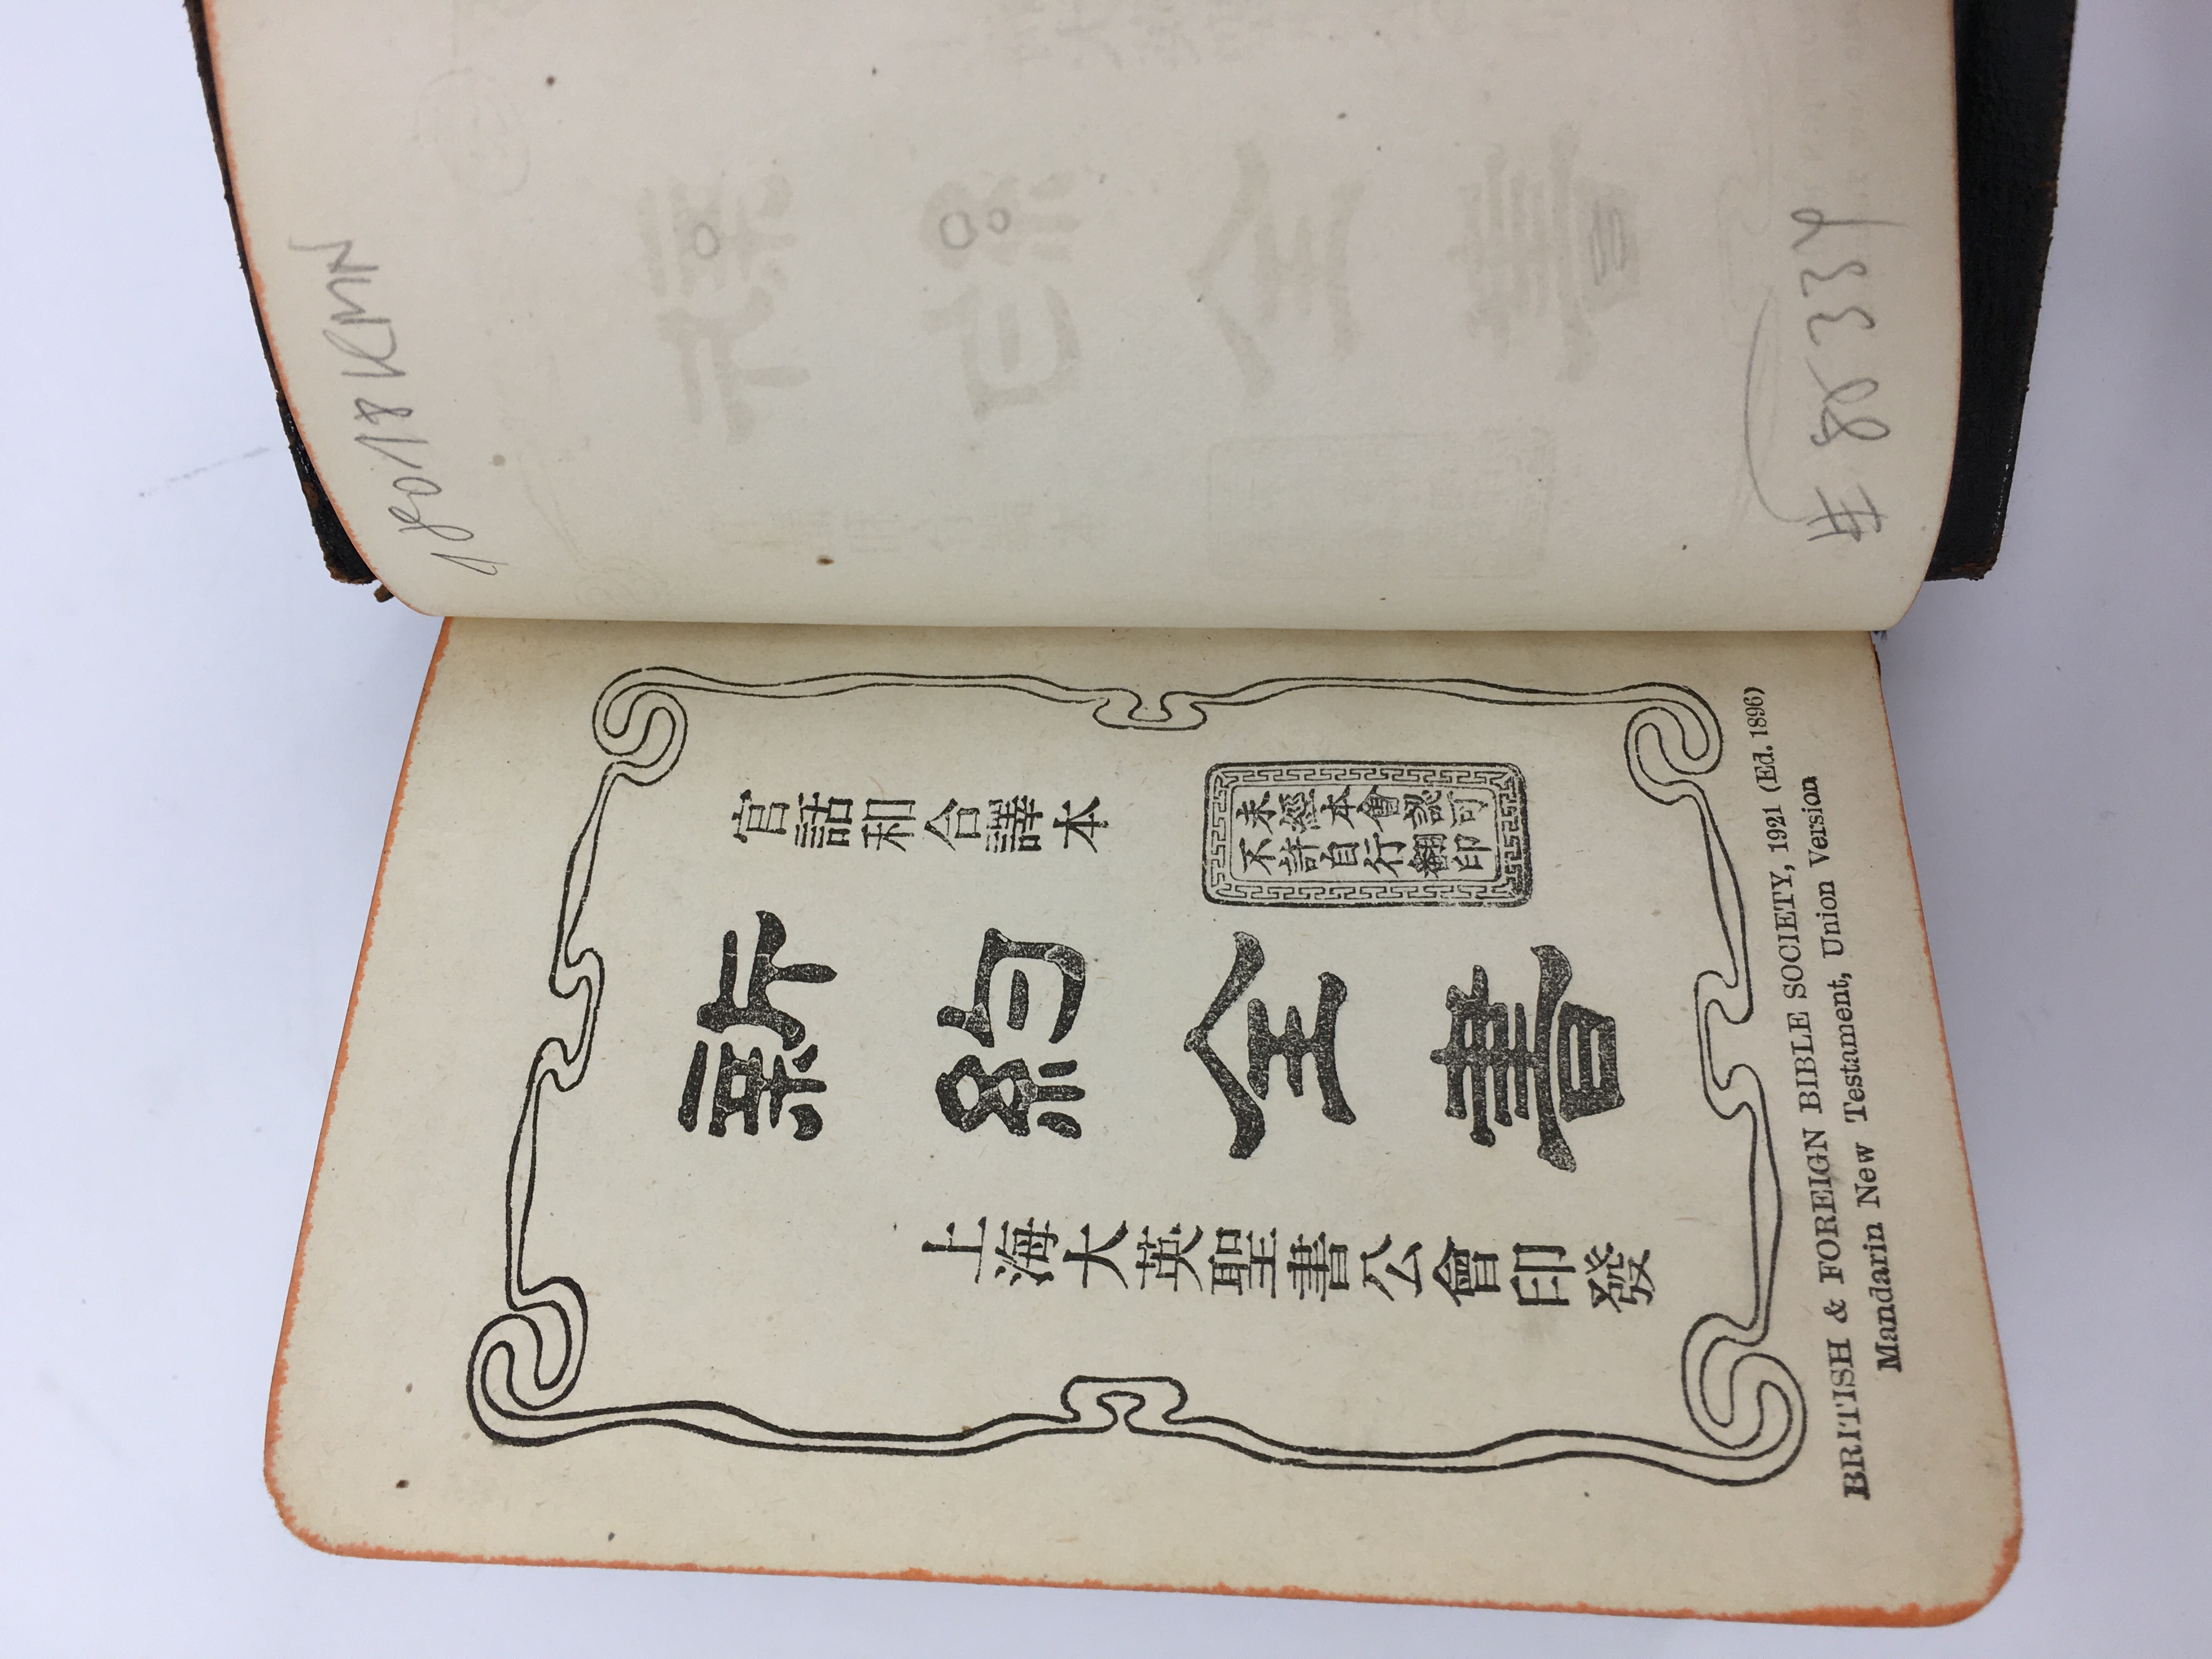 官話和合譯本
新約全書
未經本會認可
不許自行翻印
上海大英聖書公會印發
BRITISH & FOREIGN BIBLE SOCIETY, 1921 (Ed. 1896)
Mandarin New Testament, Union Version
# 8339